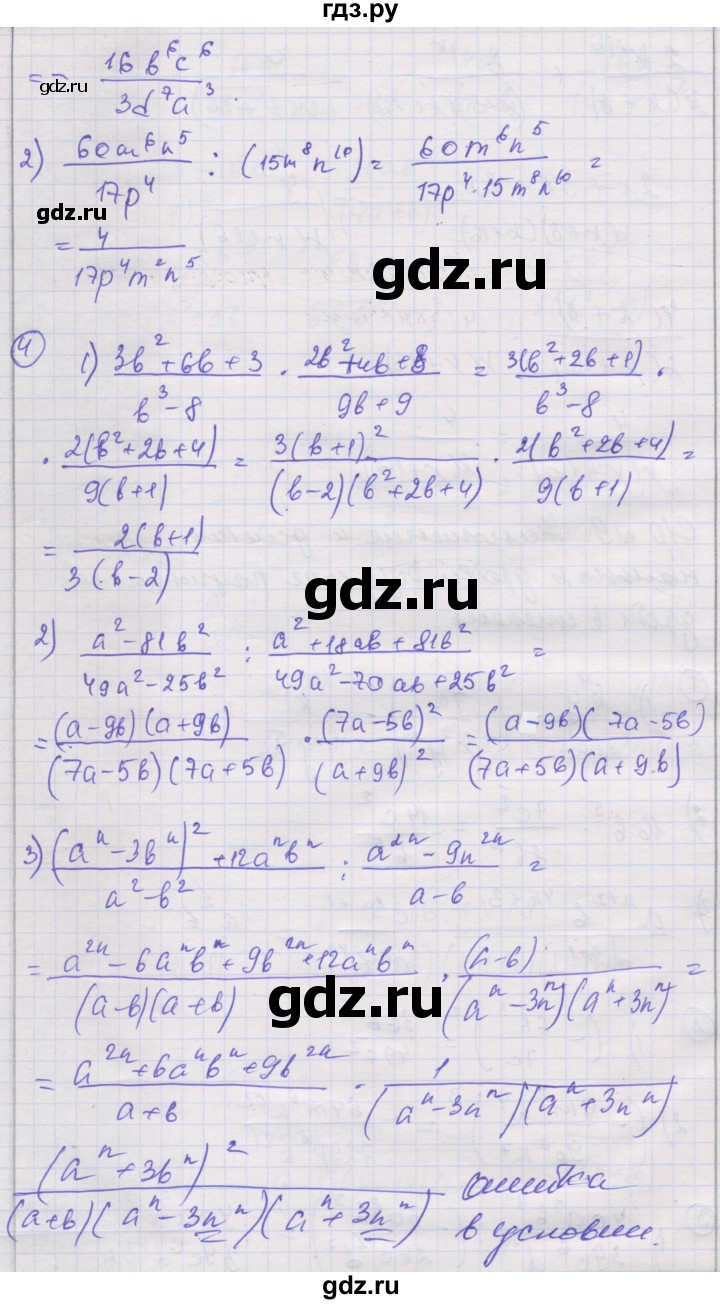 гдз.ру
= = 16b⁶c⁶ / 3d⁷a³
gdz.ru
2) 60m⁶n⁵ / 17p⁴ : (15m⁸n¹⁰) = 60m⁶n⁵ / 17p⁴·15m⁸n¹⁰ =
gdz.ru
= 4 / 17p⁴m²n⁵
gdz.ru
4
1) 3b²+6b+3 / b³-8 · 2b²+4b+8 / 9b+9 = 3(b²+2b+1) / b³-8 ·
· 2(b²+2b+4) / 9(b+1) = 3(b+1)² / (b-2)(b²+2b+4) · 2(b²+2b+4) / 9(b+1) =
= 2(b+1) / 3(b-2)
gdz.ru
2) a²-81b² / 49a²-25b² : a²+18ab+81b² / 49a²-70ab+25b² =
= (a-9b)(a+9b) / (7a-5b)(7a+5b) · (7a-5b)² / (a+9b)² = (a-9b)(7a-5b) / (7a+5b)(a+9b)
3) (aⁿ-3bⁿ)²+12aⁿbⁿ / a²-b² : a²ⁿ-9n²ⁿ / a-b =
= a²ⁿ-6aⁿbⁿ+9b²ⁿ+12aⁿbⁿ / (a-b)(a+b) · (a-b) / (aⁿ-3nⁿ)(aⁿ+3nⁿ) =
gdz.ru
= a²ⁿ+6aⁿbⁿ+9b²ⁿ / a+b · 1 / (aⁿ-3nⁿ)(aⁿ+3nⁿ)
(aⁿ+3bⁿ)² / (a+b)(aⁿ-3nⁿ)(aⁿ+3nⁿ) ошибка
в условии.
gdz.ru